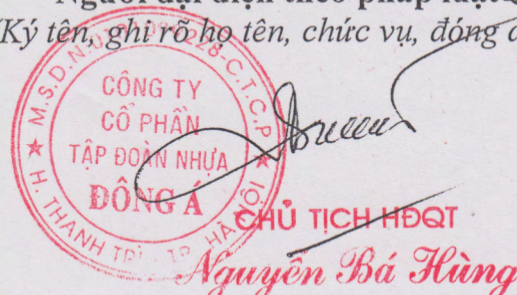 Người đại diện theo pháp luật
(Ký tên, ghi rõ họ tên, chức vụ, đóng
M.S.D.N: C.T.C.P
CÔNG TY
CỔ PHẦN
TẬP ĐOÀN NHỰA
ĐÔNG Á
H. THANH TRÌ - TP. HÀ NỘI
CHỦ TỊCH HĐQT
Nguyễn Bá Hùng